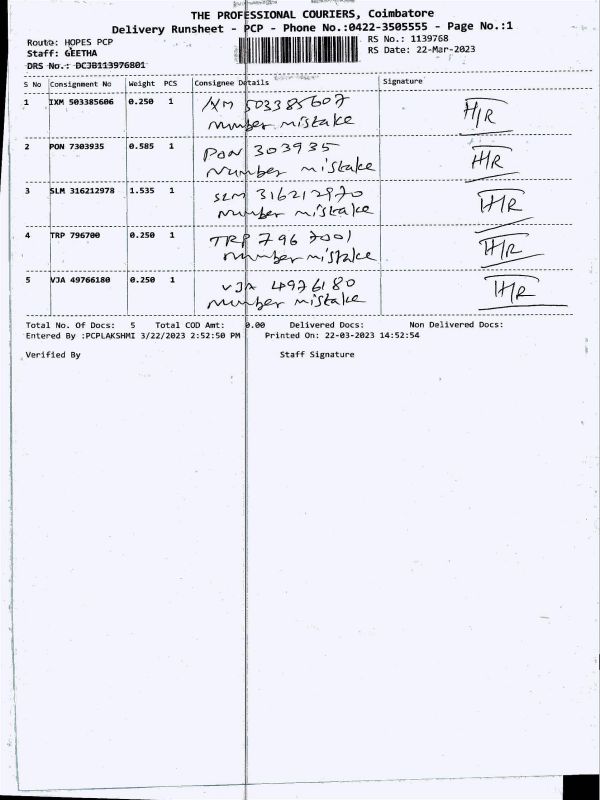 THE PROFESSIONAL COURIERS, Coimbatore
Delivery Runsheet - PCP - Phone No.:0422-3505555 - Page No.:1
Route: HOPES PCP
RS No.: 1139768
Staff: GEETHA
RS Date: 22-Mar-2023
DRS No.: DCJB113976801
S No Consignment No Weight PCS Consignee Details Signature
1 IXM 503385606 0.250 1 IXM 503385607 H/R
number mistake
2 PON 7303935 0.585 1 PON 303935 H/R
number mistake
3 SLM 316212978 1.535 1 SLM 316212970 H/R
number mistake
4 TRP 796700 0.250 1 TRP 7967001 H/R
number mistake
5 VJA 49766180 0.250 1 VJA 4976180 H/R
number mistake
Total No. Of Docs: 5 Total COD Amt: 0.00 Delivered Docs: Non Delivered Docs:
Entered By :PCPLAKSHMI 3/22/2023 2:52:50 PM Printed On: 22-03-2023 14:52:54
Verified By Staff Signature